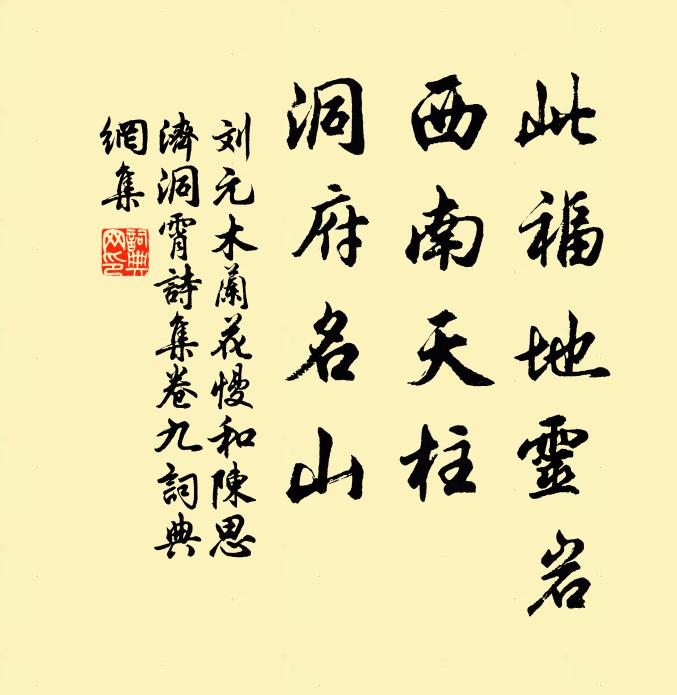 此福地靈岩
西南天柱
洞府名山
刘元木蘭花慢和陳思
濟洞霄詩集卷九詞典
網集
詞典網印